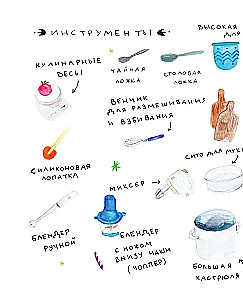 ИНСТРУМЕНТЫ
ВЫСОКАЯ
ДЛ
КУЛИНАРНЫЕ
ВЕСЫ
ЧАЙНАЯ
ЛОЖКА
СТОЛОВАЯ
ЛОЖКА
ВЕНЧИК
ДЛЯ РАЗМЕШИВАНИЯ
И ВЗБИВАНИЯ
СИЛИКОНОВАЯ
ЛОПАТКА
СИТО ДЛЯ МУК
МИКСЕР
БЛЕНДЕР
РУЧНОЙ
БЛЕНДЕР
С НОЖОМ
ВНИЗУ ЧАШИ
(ЧОППЕР)
БОЛЬШАЯ
КАСТРЮЛЯ